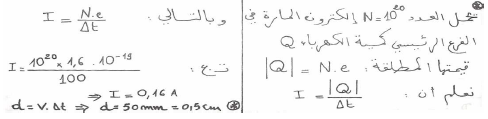 تحمل العدد N=10²⁰ إلكترون المارة في
الفرع الرئيسي كمية الكهرباء Q
قيمتها المطلقة: |Q| = N.e
نعلم ان: I = |Q|/Δt
وبالتالي: I = N.e/Δt
ت.ع: I = 10²⁰ × 1,6 . 10⁻¹⁹/100
⇒ I = 0,16 A
d = V.Δt ⇒ d = 50mm = 0,5cm